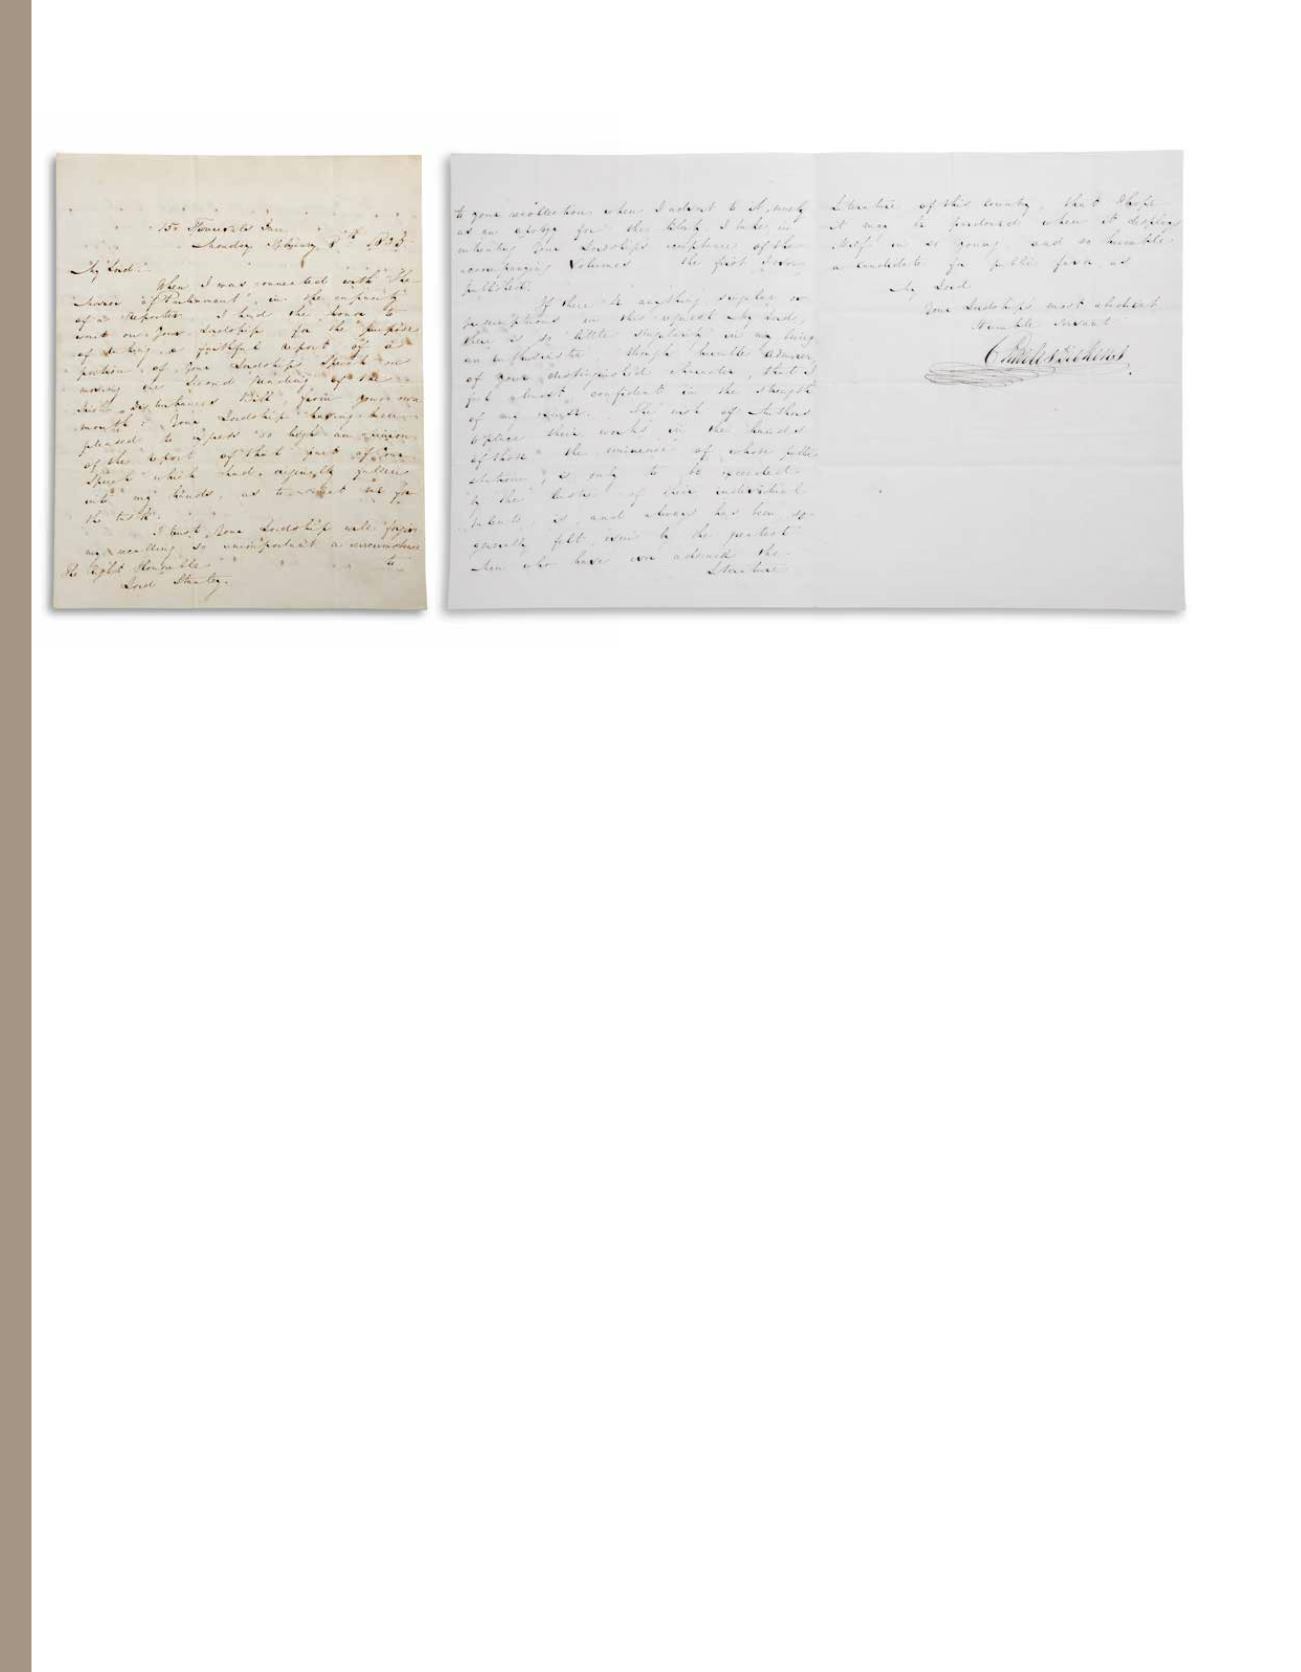 15 Furnivals Inn
Monday February 8th
My Lord.
When I was connected with the
Mirror of Parliament, in the capacity
of a Reporter I had the honor to
wait on Your Lordship for the purpose
of taking a faithful report of a
portion of Your Lordship's Speech on
moving the Second Reading of the
Irish Disturbances Bill, from your own
mouth: Your Lordship having been
pleased to express so high an opinion
of the report of that part of Your
Speech which had originally fallen
into my hands, as to me for
the task.
I trust Your Lordship will forgive
my recalling so unimportant a circumstance
to
The Right Honorable
Lord Stanley.
to your recollection when I advert to it merely
as an apology for the liberty I take in
Your Lordship's acceptance of the
accompanying Volumes the first I ever
published.
If there be anything singular or
presumptuous in this request My Lord,
there is so little singularity in my being
an enthusiastic though humble admirer
of your distinguished character, that I
feel almost confident in the strength
of my The wish of Authors
to place their works in the hands
of those the eminence of whose public
stations, is only to be exceeded
by the lustre of their individual
talents, is, and always has been so
generally felt, even by the greatest
Men who have ever adorned the
Literature
Literature of this country, that I hope
it may be pardoned when it displays
itself in so young and so humble
a candidate for public favor, as
My Lord
Your Lordship's most obedient
Humble Servant
Charles Dickens